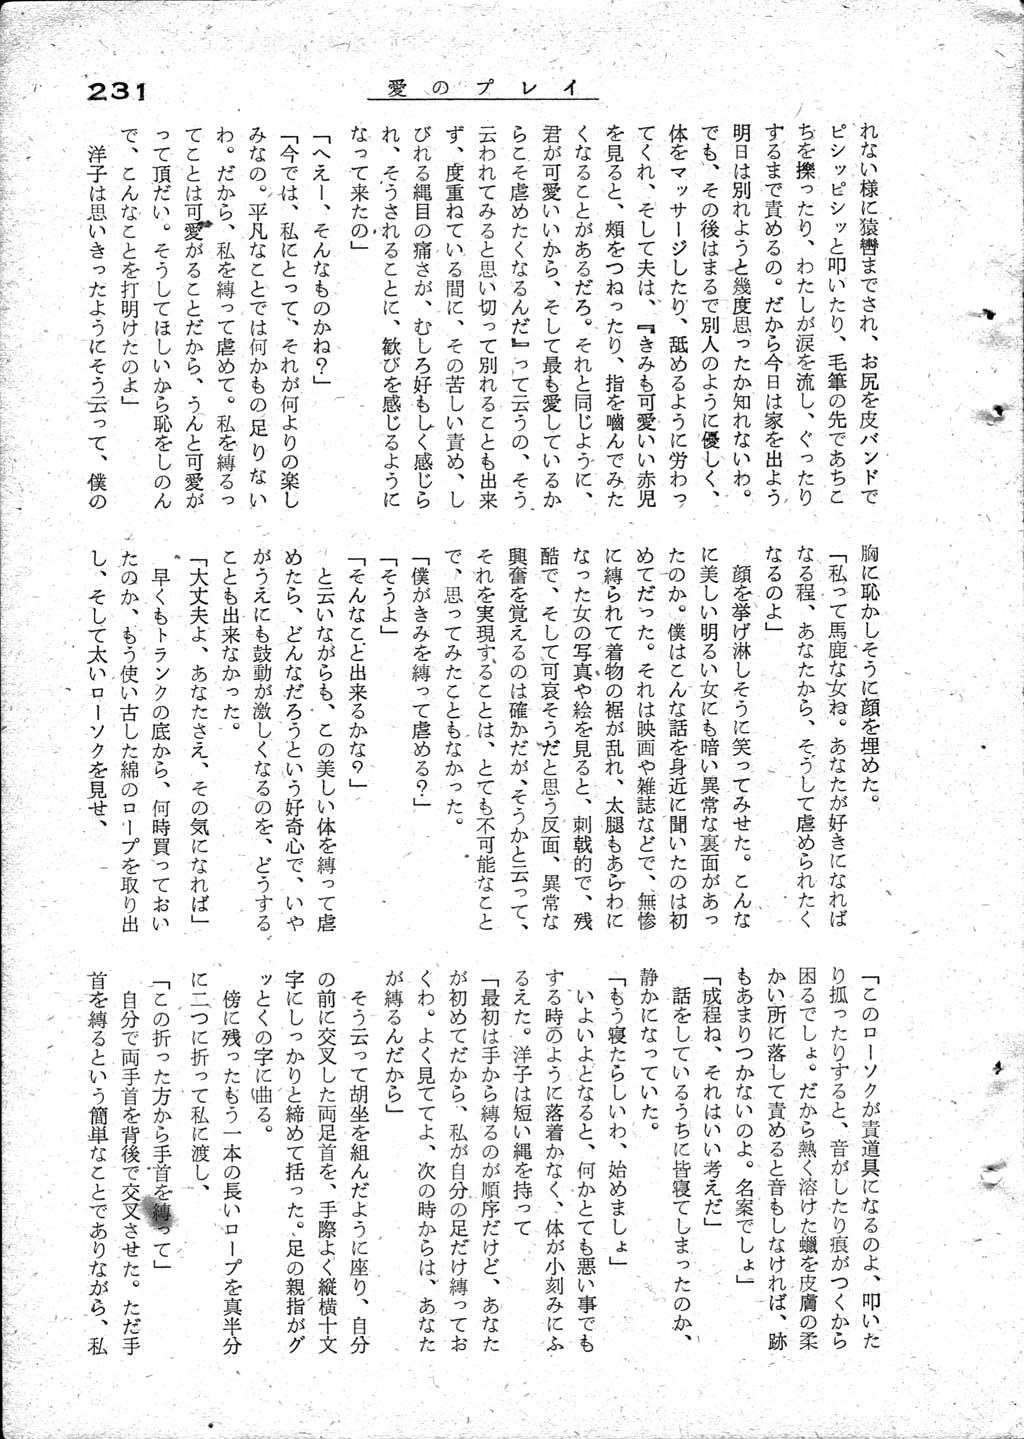 231
愛のプレイ
れない様に猿轡までされ、お尻を皮バンドで
ピシッピシッと叩いたり、毛筆の先であちこ
ちを擽ったり、わたしが涙を流し、ぐったり
するまで責めるの。だから今日は家を出よう
明日は別れようと幾度思ったか知れないわ。
でも、その後はまるで別人のように優しく、
体をマッサージしたり、舐めるように労わっ
てくれ、そして夫は、『きみも可愛いい赤児
を見ると、頬をつねったり、指を嚙んでみた
くなることがあるだろ。それと同じように、
君が可愛いいから、そして最も愛しているか
らこそ虐めたくなるんだ』って云うの、そう
云われてみると思い切って別れることも出来
ず、度重ねている間に、その苦しい責め、し
びれる縄目の痛さが、むしろ好もしく感じら
れ、そうされることに、歓びを感じるように
なって来たの」
「へえー、そんなものかね？」
「今では、私にとって、それが何よりの楽し
みなの。平凡なことでは何かもの足りない
わ。だから、私を縛って虐めて。私を縛るっ
てことは可愛がることだから、うんと可愛が
って頂だい。そうしてほしいから恥をしのん
で、こんなことを打明けたのよ」
洋子は思いきったようにそう云って、僕の
胸に恥かしそうに顔を埋めた。
「私って馬鹿な女ね。あなたが好きになれば
なる程、あなたから、そうして虐められたく
なるのよ」
顔を挙げ淋しそうに笑ってみせた。こんな
に美しい明るい女にも暗い異常な裏面があっ
たのか。僕はこんな話を身近に聞いたのは初
めてだった。それは映画や雑誌などで、無惨
に縛られて着物の裾が乱れ、太腿もあらわに
なった女の写真や絵を見ると、刺戟的で、残
酷で、そして可哀そうだと思う反面、異常な
興奮を覚えるのは確かだが、そうかと云って、
それを実現することは、とても不可能なこと
で、思ってみたこともなかった。
「僕がきみを縛って虐める？」
「そうよ」
「そんなこと出来るかな？」
と云いながらも、この美しい体を縛って虐
めたら、どんなだろうという好奇心で、いや
がうえにも鼓動が激しくなるのを、どうする
ことも出来なかった。
「大丈夫よ、あなたさえ、その気になれば」
早くもトランクの底から、何時買っておい
たのか、もう使い古した綿のロープを取り出
し、そして太いローソクを見せ、
「このローソクが責道具になるのよ、叩いた
り抓ったりすると、音がしたり痕がつくから
困るでしょ。だから熱く溶けた蠟を皮膚の柔
かい所に落して責めると音もしなければ、跡
もあまりつかないのよ。名案でしょ」
「成程ね、それはいい考えだ」
話をしているうちに皆寝てしまったのか、
静かになっていた。
「もう寝たらしいわ、始めましょ」
いよいよとなると、何かとても悪い事でも
する時のように落着かなく、体が小刻みにふ
るえた。洋子は短い縄を持って
「最初は手から縛るのが順序だけど、あなた
が初めてだから、私が自分の足だけ縛ってお
くわ。よく見ててよ、次の時からは、あなた
が縛るんだから」
そう云って胡坐を組んだように座り、自分
の前に交叉した両足首を、手際よく縦横十文
字にしっかりと締めて括った。足の親指がグ
ッとくの字に曲る。
傍に残ったもう一本の長いロープを真半分
に二つに折って私に渡し、
「この折った方から手首を縛って」
自分で両手首を背後で交叉させた。ただ手
首を縛るという簡単なことでありながら、私